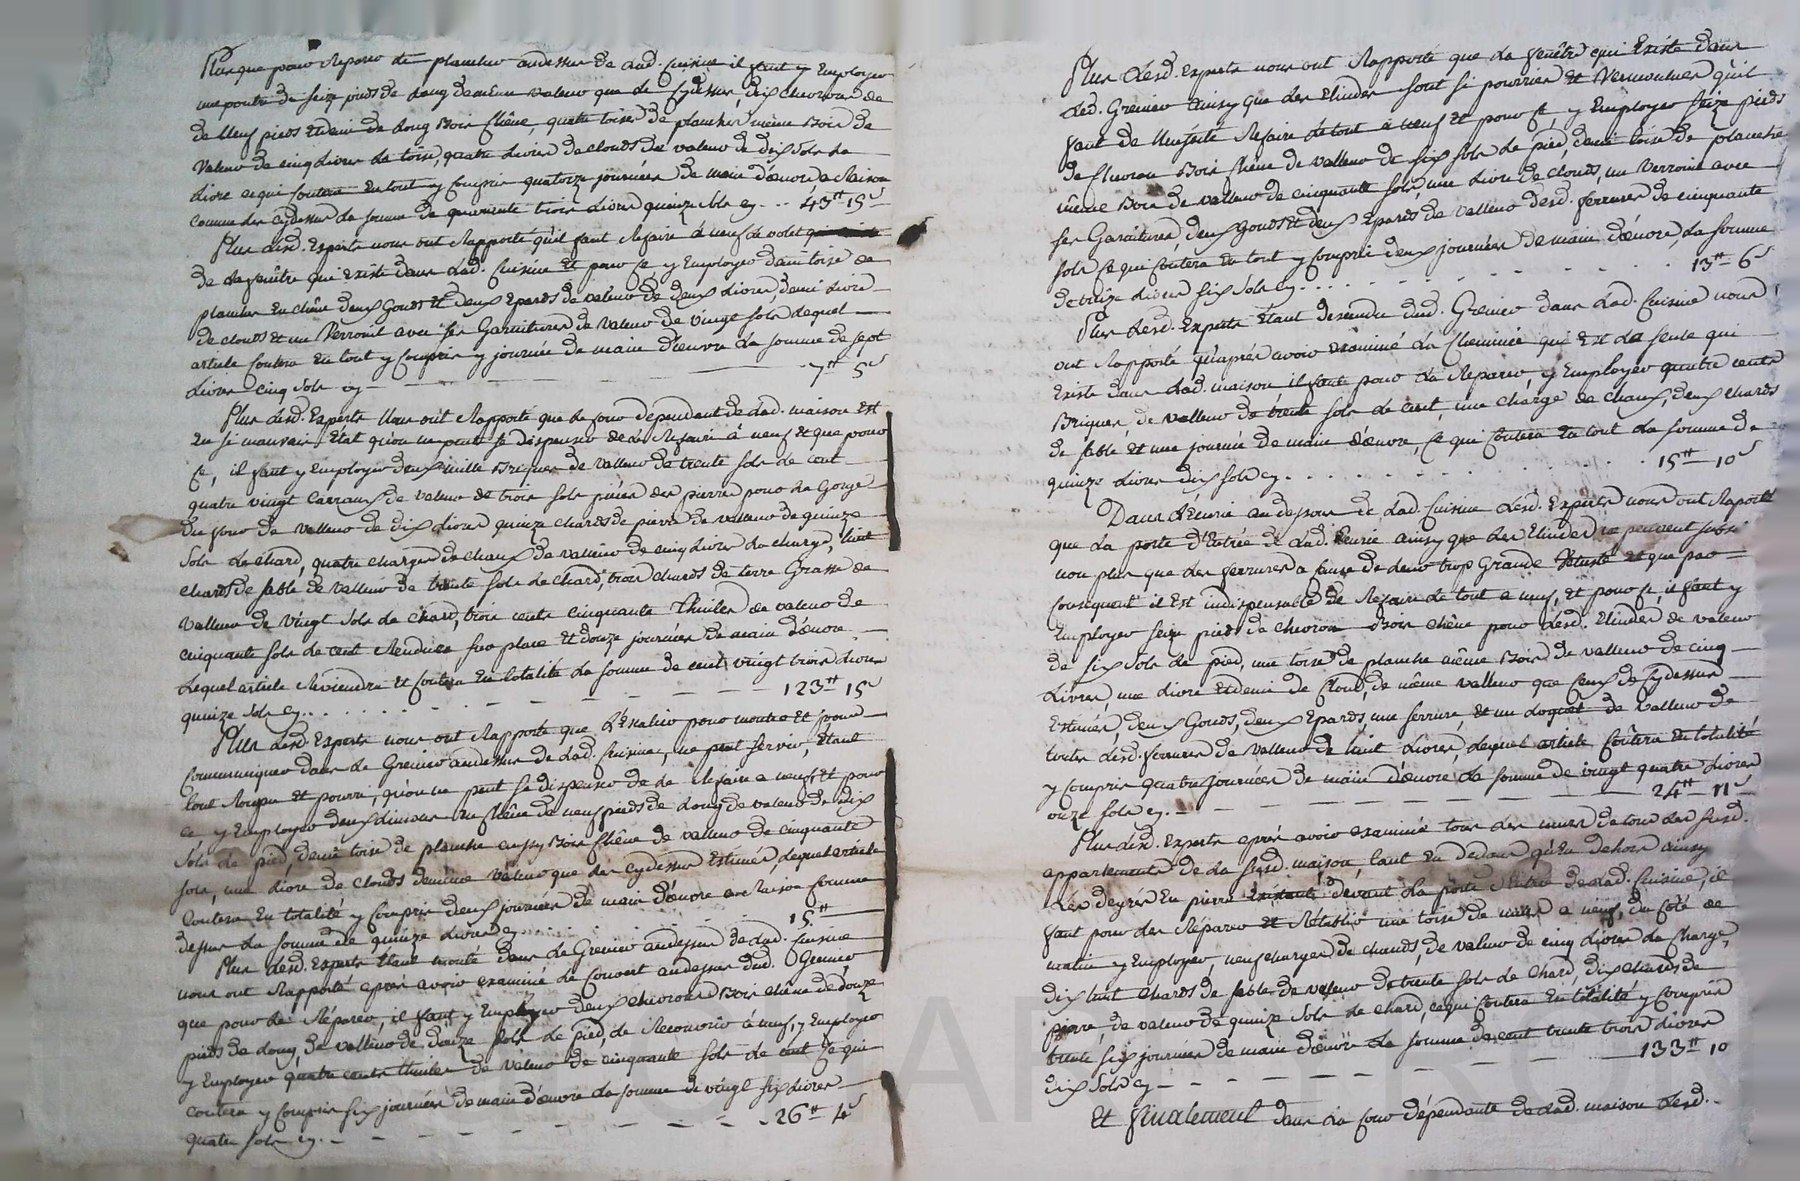 Plus que pour Reparer de plancher audessus de Lad. Cuisine il faut y Employer
une poutre de seize pieds de Long de meme valeur que de Cydessus, dix cheurons de
de Neuf pieds Et demi de Long Bois Chêne, quatre toise de plancher même Bois de
Valeur de cinq Livres La toise, quatre Livres de clouds de valeur de dix Sols La
Livre ce qui Coutera En tout y Compris quatorze journées de main d'œuvre a Raison
Comme des Cydessus La somme de quarente trois Livres quinze Sols cy... 43ᵗᵗ 15ˢ
Plus Lesd. Experts nous ont Rapporté qu'il faut Refaire à neuf Le volet
de La fenêtre qui Existe dans Lad. Cuisine Et pour Ce, y Employer demi toise de
planches En chêne deux Gonds Et deux Epards de valeur de deux Livres, demi Livre
de clouds et un Verrouil avec ses Garnitures de Valeur de Vingt Sols Lequel
article Coutera En tout y Compris y journée de main d'œuvre La somme de sept
Livres cinq Sols cy — 7ᵗᵗ 5ˢ
Plus Lesd. Experts Nous ont Rapporté que Le four dependant de Lad. maison Est
En si mauvais Etat qu'on ne peut se dispenser de Le Refaire à neuf Et que pour
Ce, il faut y Employer deux mille Briques de valleur de trente sols Le Cent
quatre vingt Carraux de valeur de trois sols pièces des pierres pour La Gorge
du four de valleur de dix Livres quinze chards de pierre de valleur de quinze
Sols Le chard, quatre charges de chaux de valleur de cinq Livres La charge, huit
chards de sable de valleur de trente Sols Le chard, trois chards de terre Grasse de
valleur de vingt Sols Le chard, trois cents cinquante Thuiles de valeur de
cinquante sols Le cent Rendues sur place Et douze journées de main d'œuvre,
Lequel article Reviendra Et Coutera En totalité La somme de cent vingt trois Livres
quinze Sols cy... 123ᵗᵗ 15ˢ
Plus Lesd. Experts nous ont Rapporté que L'Escalier pour monter Et pour
Communiquer dans Le Grenier audessus de Lad. Cuisine, ne peut servir, Etant
tout Rompu Et pourri, qu'on ne peut se dispenser de Le Refaire a neuf Et pour
ce y Employer deux Limons En Chêne de neuf pieds de Long de valeur de dix
Sols Le pied, demie toise de planche aussy Bois Chêne de valleur de cinquante
sols, une Livre de Clouds de même valeur que Les cydessus Estimés, Lequel article
Coutera En totalité y Compris deux journées de main d'œuvre a Raison Comme
dessus La somme de quinze Livres cy... 15ᵗᵗ
Plus Lesd. Experts Etant monté dans Le Grenier audessus de Lad. Cuisine
nous ont Rapporté apres avoir examiné Le Couvert audessus dud. Grenier
que pour Le Réparer, il faut y Employer deux cheurons Bois chêne de douze
pieds de Long, de valleur de douze Sols Le pied, Le Recouvrir à neuf, y Employer
y Employer quatre cents thuiles de valeur de cinquante sols Le cent Ce qui
coutera y Compris six journées de main d'œuvre La somme de vingt six Livres
quatre sols cy. — 26ᵗᵗ 4ˢ
Plus Lesd. Experts nous ont Rapporté que La fenêtre qui Existe dans
Led. Grenier ainsy que Les Elindes sont si pourries Et Vermoulues qu'il
faut de Necessité Refaire Le tout à neuf Et pour Ce, y Employer seize pieds
de Cheuron Bois Chêne de valleur de six Sols Le pied, demi toise de planche
même Bois de valleur de cinquante sols une Livre de clouds, un Verrouil avec
ses Garnitures, deux Gonds Et deux Epards de valleur Lesd. ferrures de cinquante
sols Ce qui Coutera En tout y Compris deux journées de main d'œuvre, La somme
de treize Livres six Sols cy... 13ᵗᵗ 6ˢ
Plus Lesd. Experts Etant descendu dud. Grenier dans Lad. Cuisine nous
ont Rapporté qu'après avoir examiné La Cheminée qui Est La seule qui
Existe dans Lad. maison il faut pour La Reparer, y Employer quatre cents
Briques de valleur de trente Sols Le Cent, une charge de chaux, deux chards
de sable et une journée de main d'œuvre, Ce qui Coutera En tout La somme de
quinze Livres dix sols cy... 15ᵗᵗ 10ˢ
Dans L'Ecurie au dessous de Lad. Cuisine Lesd. Experts nous ont Raporté
que La porte d'Entrée de Lad. Ecurie ainsy que Les Elindes ne peuvent subsi
non plus que Les ferrures a Cause de Leur trop Grande Vetusté et que par
Consequent il Est indispensable de Refaire Le tout a neuf, Et pour Ce, il faut y
Employer seize pieds de cheuron Bois chêne pour Lesd. Elindes de valeur
de six Sols Le pied, une toise de planche même Bois de valleur de cinq
Livres, une Livre Et demi de Cloud, de même valleur que Ceux de Cydessus
Estimés, deux Gonds, deux Epards, une serrure, Et un Loquet de Valleur de
toutes Lesd. ferrures de valleur de huit Livres, Lequel article Coûtera En totalité
y Compris quatre journées de main d'œuvre La somme de vingt quatre Livres
onze Sols cy. — 24ᵗᵗ 11ˢ
Plus Lesd. Experts après avoir examiné tous Les murs de tous Les susd.
appartements de La susd. maison, tant En dedans qu'En dehors ainsy
Les degrés En pierre Existants devant La porte d'Entrée de Lad. Cuisine, il
faut pour Les Réparer Et Rétablir une toise de mur a neuf, du Côté de
matin y Employer, neuf charges de chaud, de valeur de cinq Livres La Charge,
dix huit Chards de sable de valeur de trente sols Le Chard, dix Chards de
pierre, de valeur de quinze Sols Le chard, ce qui Coutera En totalité y Compris
trente six journées de main d'œuvre La somme de cent trente trois Livres
dix Sols cy — 133ᵗᵗ 10
Et finalement dans La Cour dépendante de Lad. maison Lesd.